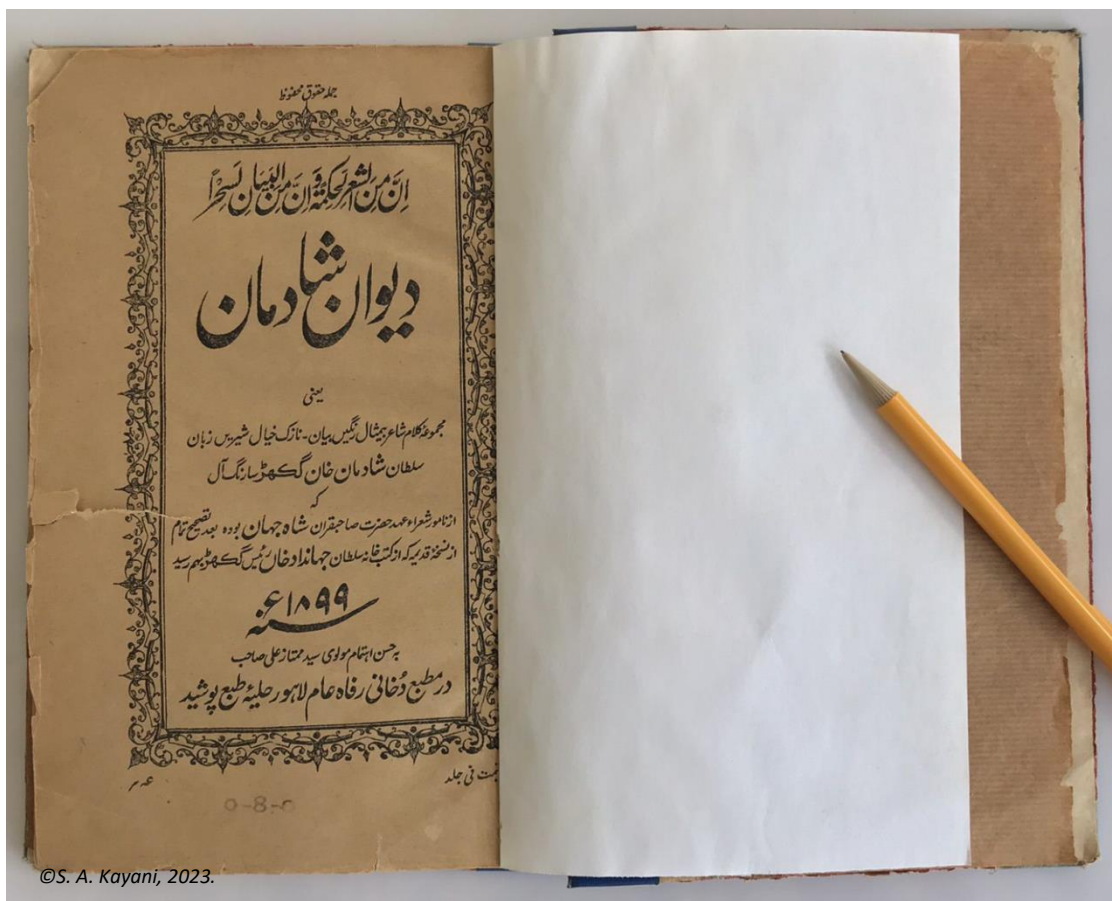 جملہ حقوق محفوظ
اِنَّ مِنَ الشِّعْرِ لَحِكْمَةً وَّاِنَّ مِنَ الْبَيَانِ لَسِحْرًا
دیوان شادمان
یعنی
مجموعۂ کلام شاعر بیمثال رنگیں بیان - نازک خیال شیریں زبان
سلطان شادمان خان گکھڑ سارنگ آل
کہ
از نامور شعراء عہد حضرت صاحبقران شاہ جہان بودہ بعد تصحیح تمام
از نسخۂ قدیمہ کہ از کتب خانہ سلطان جہانداد خاں رئیس گکھڑ بہم رسید
سنہ ۱۸۹۹ء
بہ حسن اہتمام مولوی سید ممتاز علی صاحب
در مطبع دُخانی رفاہ عام لاہور حلیۂ طبع پوشید
قیمت فی جلد
0-8-0
©S. A. Kayani, 2023.